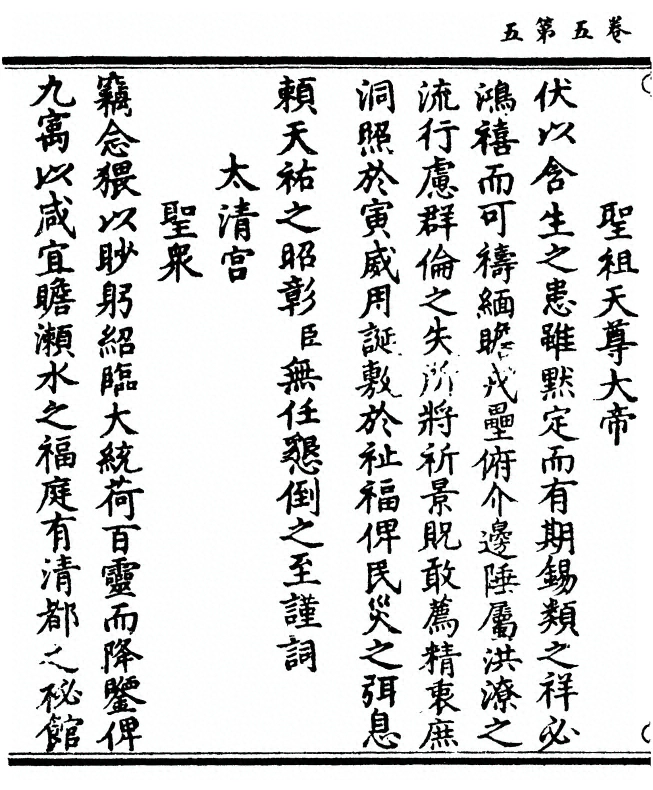 卷五第五
聖祖天尊大帝
伏以含生之患雖默定而有期錫類之祥必
鴻禧而可禱緬瞻戎壘俯介邊陲屬洪潦之
流行慮群倫之失所將祈景貺敢薦精衷庶
洞照於寅威用誕敷於祉福俾民災之弭息
賴天祐之昭彰臣無任懇倒之至謹詞
太清宮
聖衆
竊念猥以眇躬紹臨大統荷百靈而降鑒俾
九寓以咸宜瞻瀨水之福庭有清都之祕館